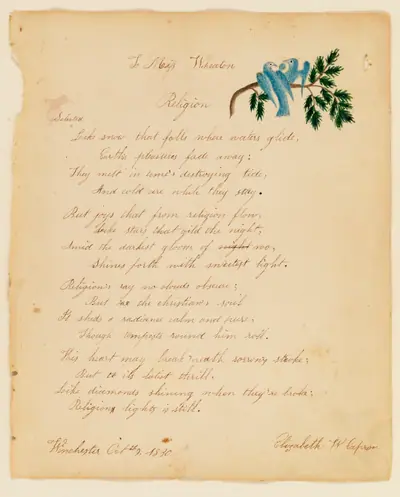 To Mary Wheaton
Religion
Selected
Like snow that falls where waters glide,
Earth's pleasures fade away;
They melt in time's destroying tide,
And cold are while they stay.
But joys that from religion flow,
Like stars that gild the night,
Amid the darkest gloom of night wo,
Shines forth with sweetest light.
Religion's ray no clouds obscure;
But the christian's soul
It sheds a radiance calm and pure;
Though tempests round him roll.
His heart may break neath sorrow's stroke;
But to its latest thrill,
Like diamonds shining when they're broke;
Religions light is still.
Winchester Oct 1830
Elizabeth W